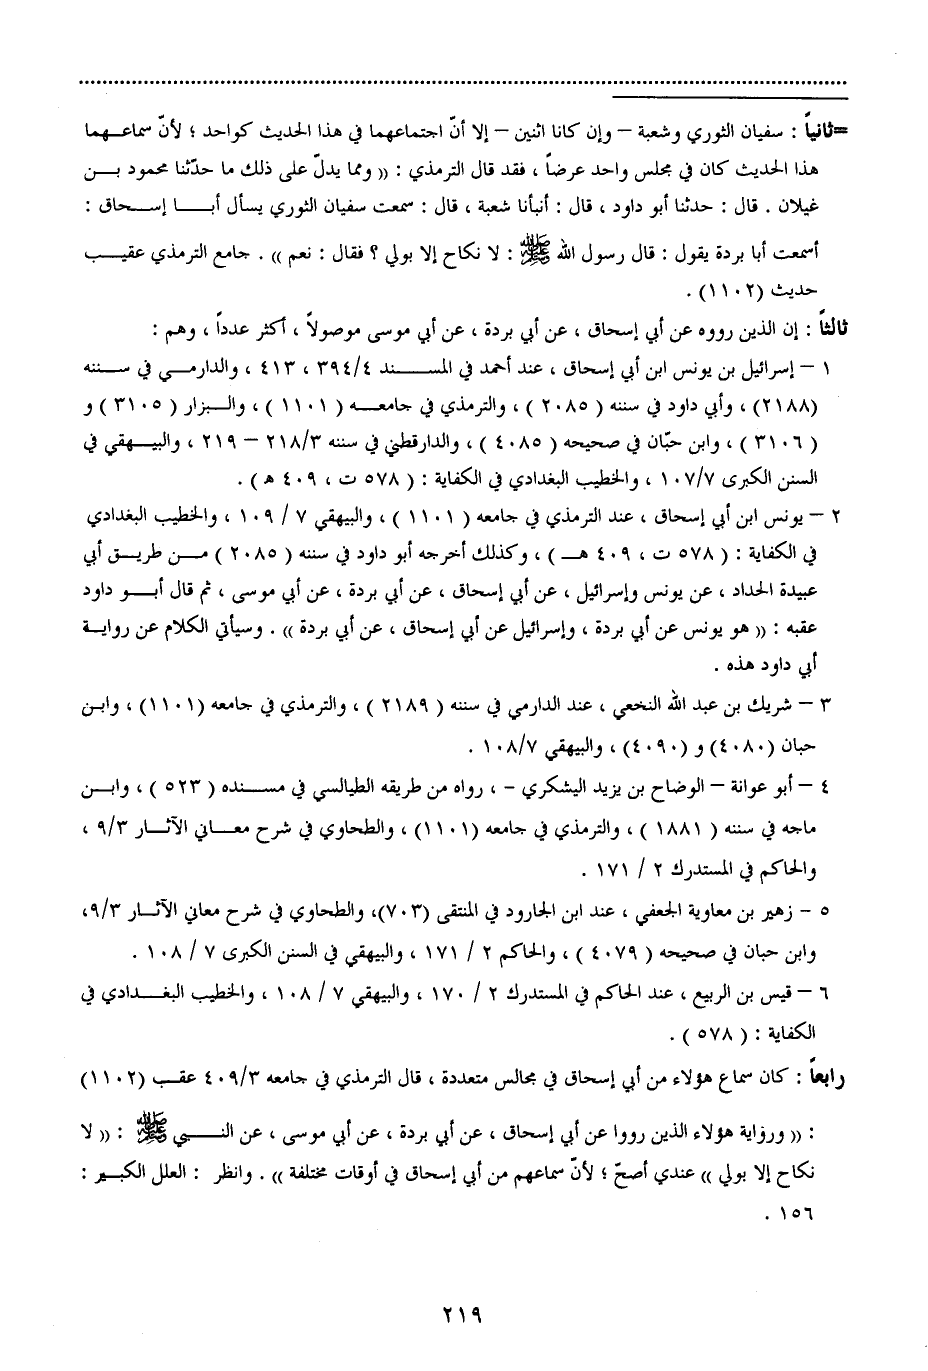 =ثانياً : سفيان الثوري وشعبة – وإن كانا اثنين – إلا أنّ اجتماعهما في هذا الحديث كواحد ؛ لأنّ سماعهما
هذا الحديث كان في مجلس واحد عرضاً ، فقد قال الترمذي : (( ومما يدلّ على ذلك ما حدّثنا محمود بن
غيلان . قال : حدثنا أبو داود ، قال : أنبأنا شعبة ، قال : سمعت سفيان الثوري يسأل أبا إسحاق :
أسمعت أبا بردة يقول : قال رسول الله ﷺ : لا نكاح إلا بولي ؟ فقال : نعم )) . جامع الترمذي عقيب
حديث (١١٠٢) .
ثالثاً : إن الذين رووه عن أبي إسحاق ، عن أبي بردة ، عن أبي موسى موصولاً ، أكثر عدداً ، وهم :
١ – إسرائيل بن يونس ابن أبي إسحاق ، عند أحمد في المسند ٣٩٤/٤ ، ٤١٣ ، والدارمي في سننه
(٢١٨٨) ، وأبي داود في سننه ( ٢٠٨٥ ) ، والترمذي في جامعه ( ١١٠١ ) ، والبزار ( ٣١٠٥ ) و
( ٣١٠٦ ) ، وابن حبّان في صحيحه ( ٤٠٨٥ ) ، والدارقطني في سننه ٢١٨/٣ – ٢١٩ ، والبيهقي في
السنن الكبرى ١٠٧/٧ ، والخطيب البغدادي في الكفاية : ( ٥٧٨ ت ، ٤٠٩ هـ ) .
٢ – يونس ابن أبي إسحاق ، عند الترمذي في جامعه ( ١١٠١ ) ، والبيهقي ٧ / ١٠٩ ، والخطيب البغدادي
في الكفاية : ( ٥٧٨ ت ، ٤٠٩ هـ ) ، وكذلك أخرجه أبو داود في سننه ( ٢٠٨٥ ) من طريق أبي
عبيدة الحداد ، عن يونس وإسرائيل ، عن أبي إسحاق ، عن أبي بردة ، عن أبي موسى ، ثم قال أبو داود
عقبه : (( هو يونس عن أبي بردة ، وإسرائيل عن أبي إسحاق ، عن أبي بردة )) . وسيأتي الكلام عن رواية
أبي داود هذه .
٣ – شريك بن عبد الله النخعي ، عند الدارمي في سننه ( ٢١٨٩ ) ، والترمذي في جامعه (١١٠١) ، وابن
حبان (٤٠٨٠) و (٤٠٩٠) ، والبيهقي ١٠٨/٧ .
٤ – أبو عوانة – الوضاح بن يزيد اليشكري - ، رواه من طريقه الطيالسي في مسنده ( ٥٢٣ ) ، وابن
ماجه في سننه ( ١٨٨١ ) ، والترمذي في جامعه (١١٠١) ، والطحاوي في شرح معاني الآثار ٩/٣ ،
والحاكم في المستدرك ٢ / ١٧١ .
٥ - زهير بن معاوية الجعفي ، عند ابن الجارود في المنتقى (٧٠٣)، والطحاوي في شرح معاني الآثار ٩/٣،
وابن حبان في صحيحه ( ٤٠٧٩ ) ، والحاكم ٢ / ١٧١ ، والبيهقي في السنن الكبرى ٧ / ١٠٨ .
٦ – قيس بن الربيع ، عند الحاكم في المستدرك ٢ / ١٧٠ ، والبيهقي ٧ / ١٠٨ ، والخطيب البغدادي في
الكفاية : ( ٥٧٨ ) .
رابعاً : كان سماع هؤلاء من أبي إسحاق في مجالس متعددة ، قال الترمذي في جامعه ٤٠٩/٣ عقب (١١٠٢)
: (( ورواية هؤلاء الذين رووا عن أبي إسحاق ، عن أبي بردة ، عن أبي موسى ، عن النبي ﷺ : (( لا
نكاح إلا بولي )) عندي أصحّ ؛ لأنّ سماعهم من أبي إسحاق في أوقات مختلفة )) . وانظر : العلل الكبير :
١٥٦ .
٢١٩